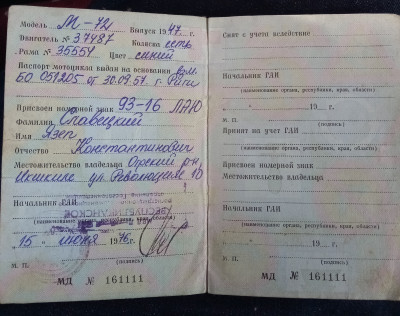 Модель М-72 Выпуск 1947 г.
Двигатель № 37487 Коляска есть
Рама № 35551 Цвет синий
Паспорт мотоцикла выдан на основании взм.
БО 051205 от 30.09.57 г. Риги
Присвоен номерной знак 93-16 ЛАЮ
Фамилия Славецкий
Имя Язеп
Отчество Константинович
Местожительство владельца Огрский р-н,
Икшкиле ул. Революцияс 10
Начальник ГАИ
(наименование органа,
РЕСПУБЛИКАНСКОЕ
"15" июня 1976 г.
М. П. (подпись)
МД № 161111
Снят с учета вследствие
Начальник ГАИ
(наименование органа, республики, края, области)
19 г.
М. П. (подпись)
Принят на учет ГАИ
(наименование органа, республики, края, области)
Присвоен номерной знак
Местожительство владельца
Начальник ГАИ
(наименование органа, республики, края, области)
19 г.
М. П. (подпись)
МД № 161111